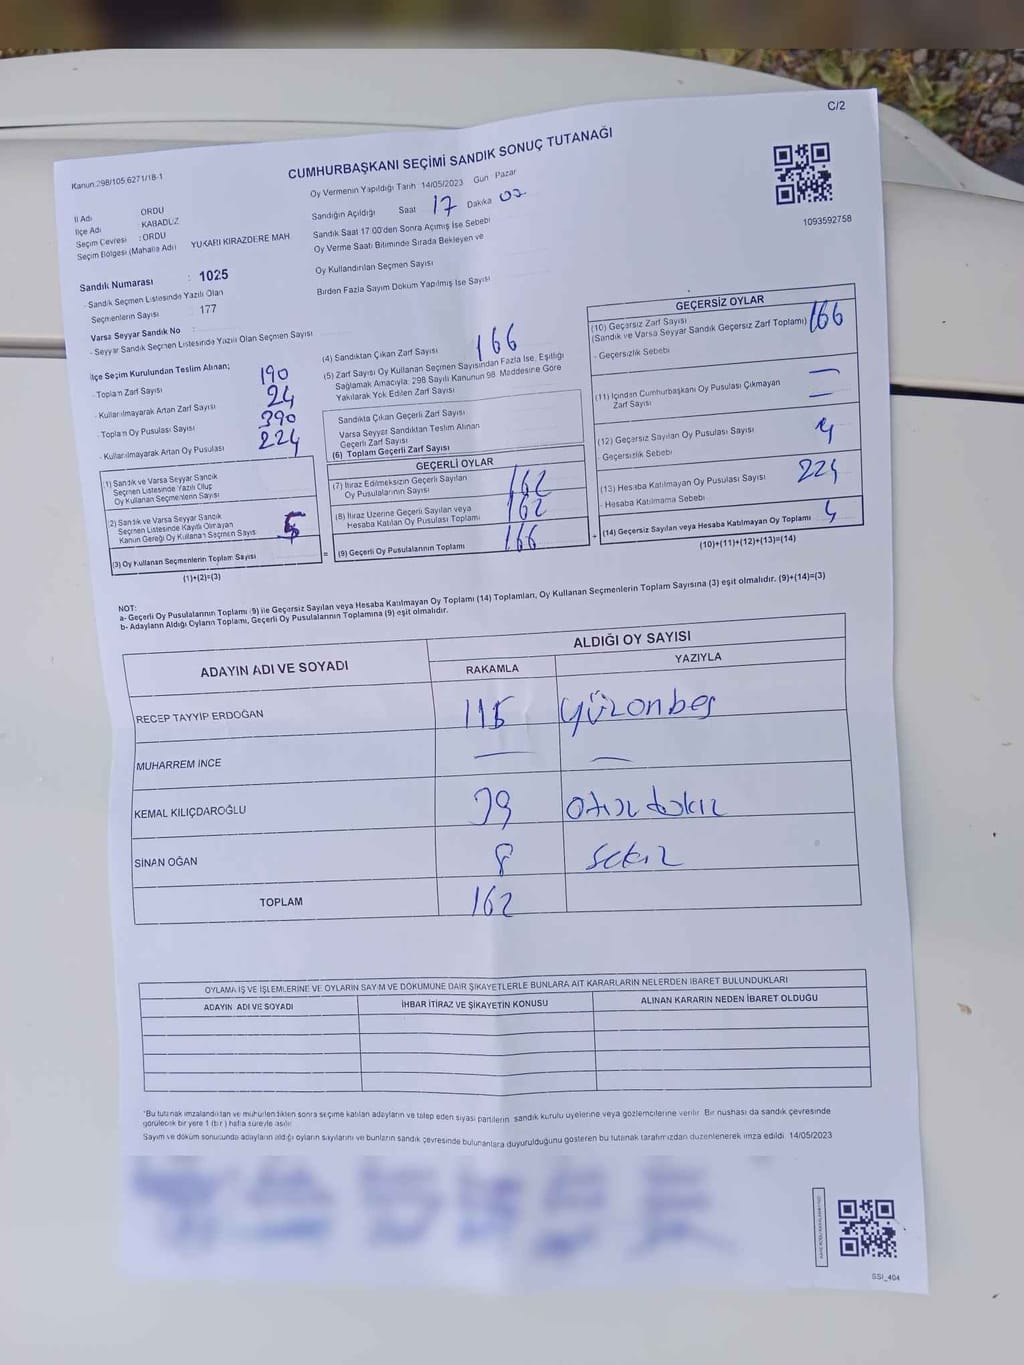 C/2
Kanun:298/105,6271/18-1
CUMHURBAŞKANI SEÇİMİ SANDIK SONUÇ TUTANAĞI
Oy Vermenin Yapıldığı Tarih 14/05/2023 Gün Pazar
1093592758
İl Adı ORDU
İlçe Adı KABADÜZ
Seçim Çevresi : ORDU
Seçim Bölgesi (Mahalle Adı) YUKARI KIRAZDERE MAH.
Sandığın Açıldığı Saat 17 Dakika 02
Sandık Saat 17:00'den Sonra Açılmış İse Sebebi
Oy Verme Saati Bitiminde Sırada Bekleyen ve
Oy Kullandırılan Seçmen Sayısı
Birden Fazla Sayım Döküm Yapılmış İse Sayısı
Sandık Numarası : 1025
- Sandık Seçmen Listesinde Yazılı Olan
Seçmenlerin Sayısı : 177
Varsa Seyyar Sandık No :
- Seyyar Sandık Seçmen Listesinde Yazılı Olan Seçmen Sayısı
İlçe Seçim Kurulundan Teslim Alınan;
- Toplam Zarf Sayısı 190
- Kullanılmayarak Artan Zarf Sayısı 24
- Toplam Oy Pusulası Sayısı 390
- Kullanılmayarak Artan Oy Pusulası 224
1) Sandık ve Varsa Seyyar Sandık
Seçmen Listesinde Yazılı Olup
Oy Kullanan Seçmenlerin Sayısı
2) Sandık ve Varsa Seyyar Sandık
Seçmen Listesinde Kayıtlı Olmayan
Kanun Gereği Oy Kullanan Seçmen Sayısı
(3) Oy Kullanan Seçmenlerin Toplam Sayısı
(1)+(2)=(3)
(4) Sandıktan Çıkan Zarf Sayısı 166
(5) Zarf Sayısı Oy Kullanan Seçmen Sayısından Fazla İse, Eşitliği
Sağlamak Amacıyla: 298 Sayılı Kanunun 98. Maddesine Göre
Yakılarak Yok Edilen Zarf Sayısı
Sandıkta Çıkan Geçerli Zarf Sayısı
Varsa Seyyar Sandıktan Teslim Alınan
Geçerli Zarf Sayısı
(6) Toplam Geçerli Zarf Sayısı
GEÇERLİ OYLAR
(7) İtiraz Edilmeksizin Geçerli Sayılan
Oy Pusulalarının Sayısı 162
(8) İtiraz Üzerine Geçerli Sayılan veya
Hesaba Katılan Oy Pusulası Toplamı 162
= (9) Geçerli Oy Pusulalarının Toplamı 166
GEÇERSİZ OYLAR
(10) Geçersiz Zarf Sayısı
(Sandık ve Varsa Seyyar Sandık Geçersiz Zarf Toplamı) 166
- Geçersizlik Sebebi
(11) İçinden Cumhurbaşkanı Oy Pusulası Çıkmayan
Zarf Sayısı —
(12) Geçersiz Sayılan Oy Pusulası Sayısı 4
- Geçersizlik Sebebi
(13) Hesaba Katılmayan Oy Pusulası Sayısı 224
- Hesaba Katılmama Sebebi
+ (14) Geçersiz Sayılan veya Hesaba Katılmayan Oy Toplamı 4
(10)+(11)+(12)+(13)=(14)
NOT:
a- Geçerli Oy Pusulalarının Toplamı (9) ile Geçersiz Sayılan veya Hesaba Katılmayan Oy Toplamı (14) Toplamları, Oy Kullanan Seçmenlerin Toplam Sayısına (3) eşit olmalıdır. (9)+(14)=(3)
b- Adayların Aldığı Oyların Toplamı, Geçerli Oy Pusulalarının Toplamına (9) eşit olmalıdır.
ADAYIN ADI VE SOYADI
ALDIĞI OY SAYISI
RAKAMLA YAZIYLA
RECEP TAYYİP ERDOĞAN 115 yüzonbeş
MUHARREM İNCE — —
KEMAL KILIÇDAROĞLU 39
SİNAN OĞAN 8 Sekiz
TOPLAM 162
OYLAMA İŞ VE İŞLEMLERİNE VE OYLARIN SAYIM VE DÖKÜMÜNE DAİR ŞİKAYETLERLE BUNLARA AİT KARARLARIN NELERDEN İBARET BULUNDUKLARI
ADAYIN ADI VE SOYADI İHBAR İTİRAZ VE ŞİKAYETİN KONUSU ALINAN KARARIN NEDEN İBARET OLDUĞU
*Bu tutanak imzalandıktan ve mühürlendikten sonra seçime katılan adayların ve talep eden siyasi partilerin sandık kurulu üyelerine veya gözlemcilerine verilir. Bir nüshası da sandık çevresinde
görülecek bir yere 1 (bir) hafta süreyle asılır.
Sayım ve döküm sonucunda adayların aldığı oyların sayılarını ve bunların sandık çevresinde bulunanlara duyurulduğunu gösteren bu tutanak tarafımızdan düzenlenerek imza edildi. 14/05/2023
SSI_404